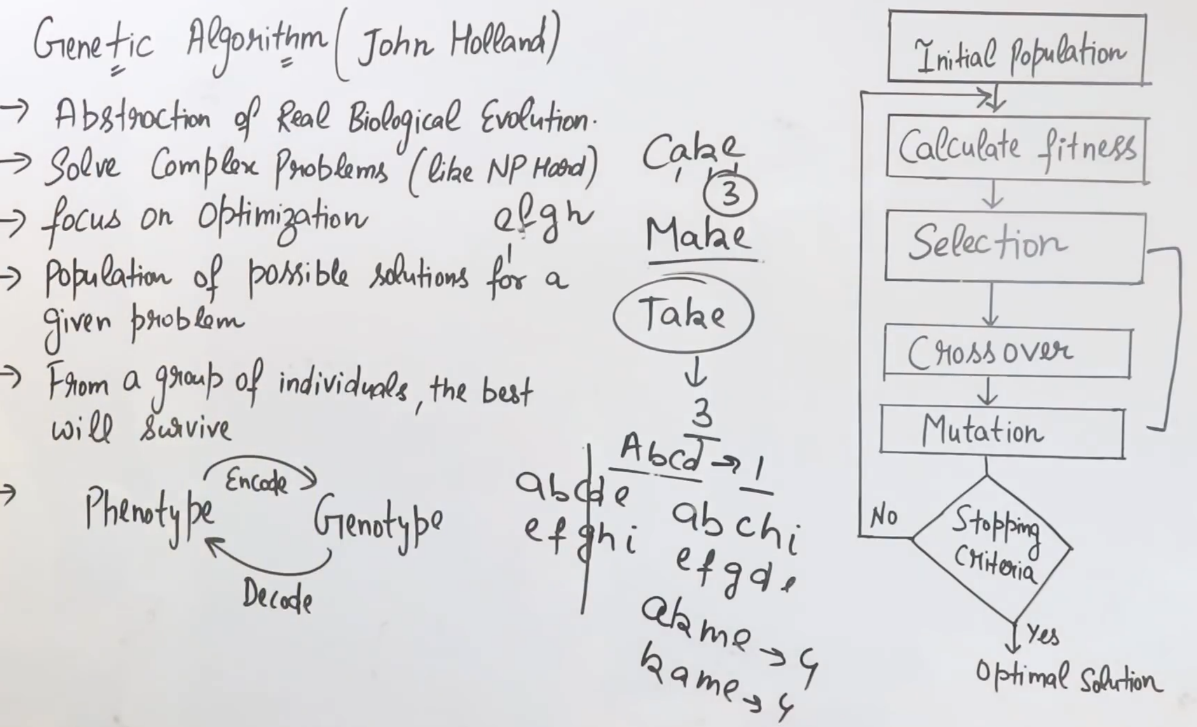 Genetic Algorithm (John Holland)
→ Abstraction of Real Biological Evolution.
→ Solve Complex Problems (like NP Hard)
→ focus on Optimization
→ Population of possible solutions for a
given problem
→ From a group of individuals, the best
will survive
→ Phenotype
Encode
Genotype
Decode
Cake
3
efgh
Make
Take
3
Abcd → 1
abcde
efghi
abchi
efgde
akme → 4
kame → 4
Initial Population
Calculate fitness
Selection
Crossover
Mutation
Stopping
Criteria
No
Yes
Optimal Solution